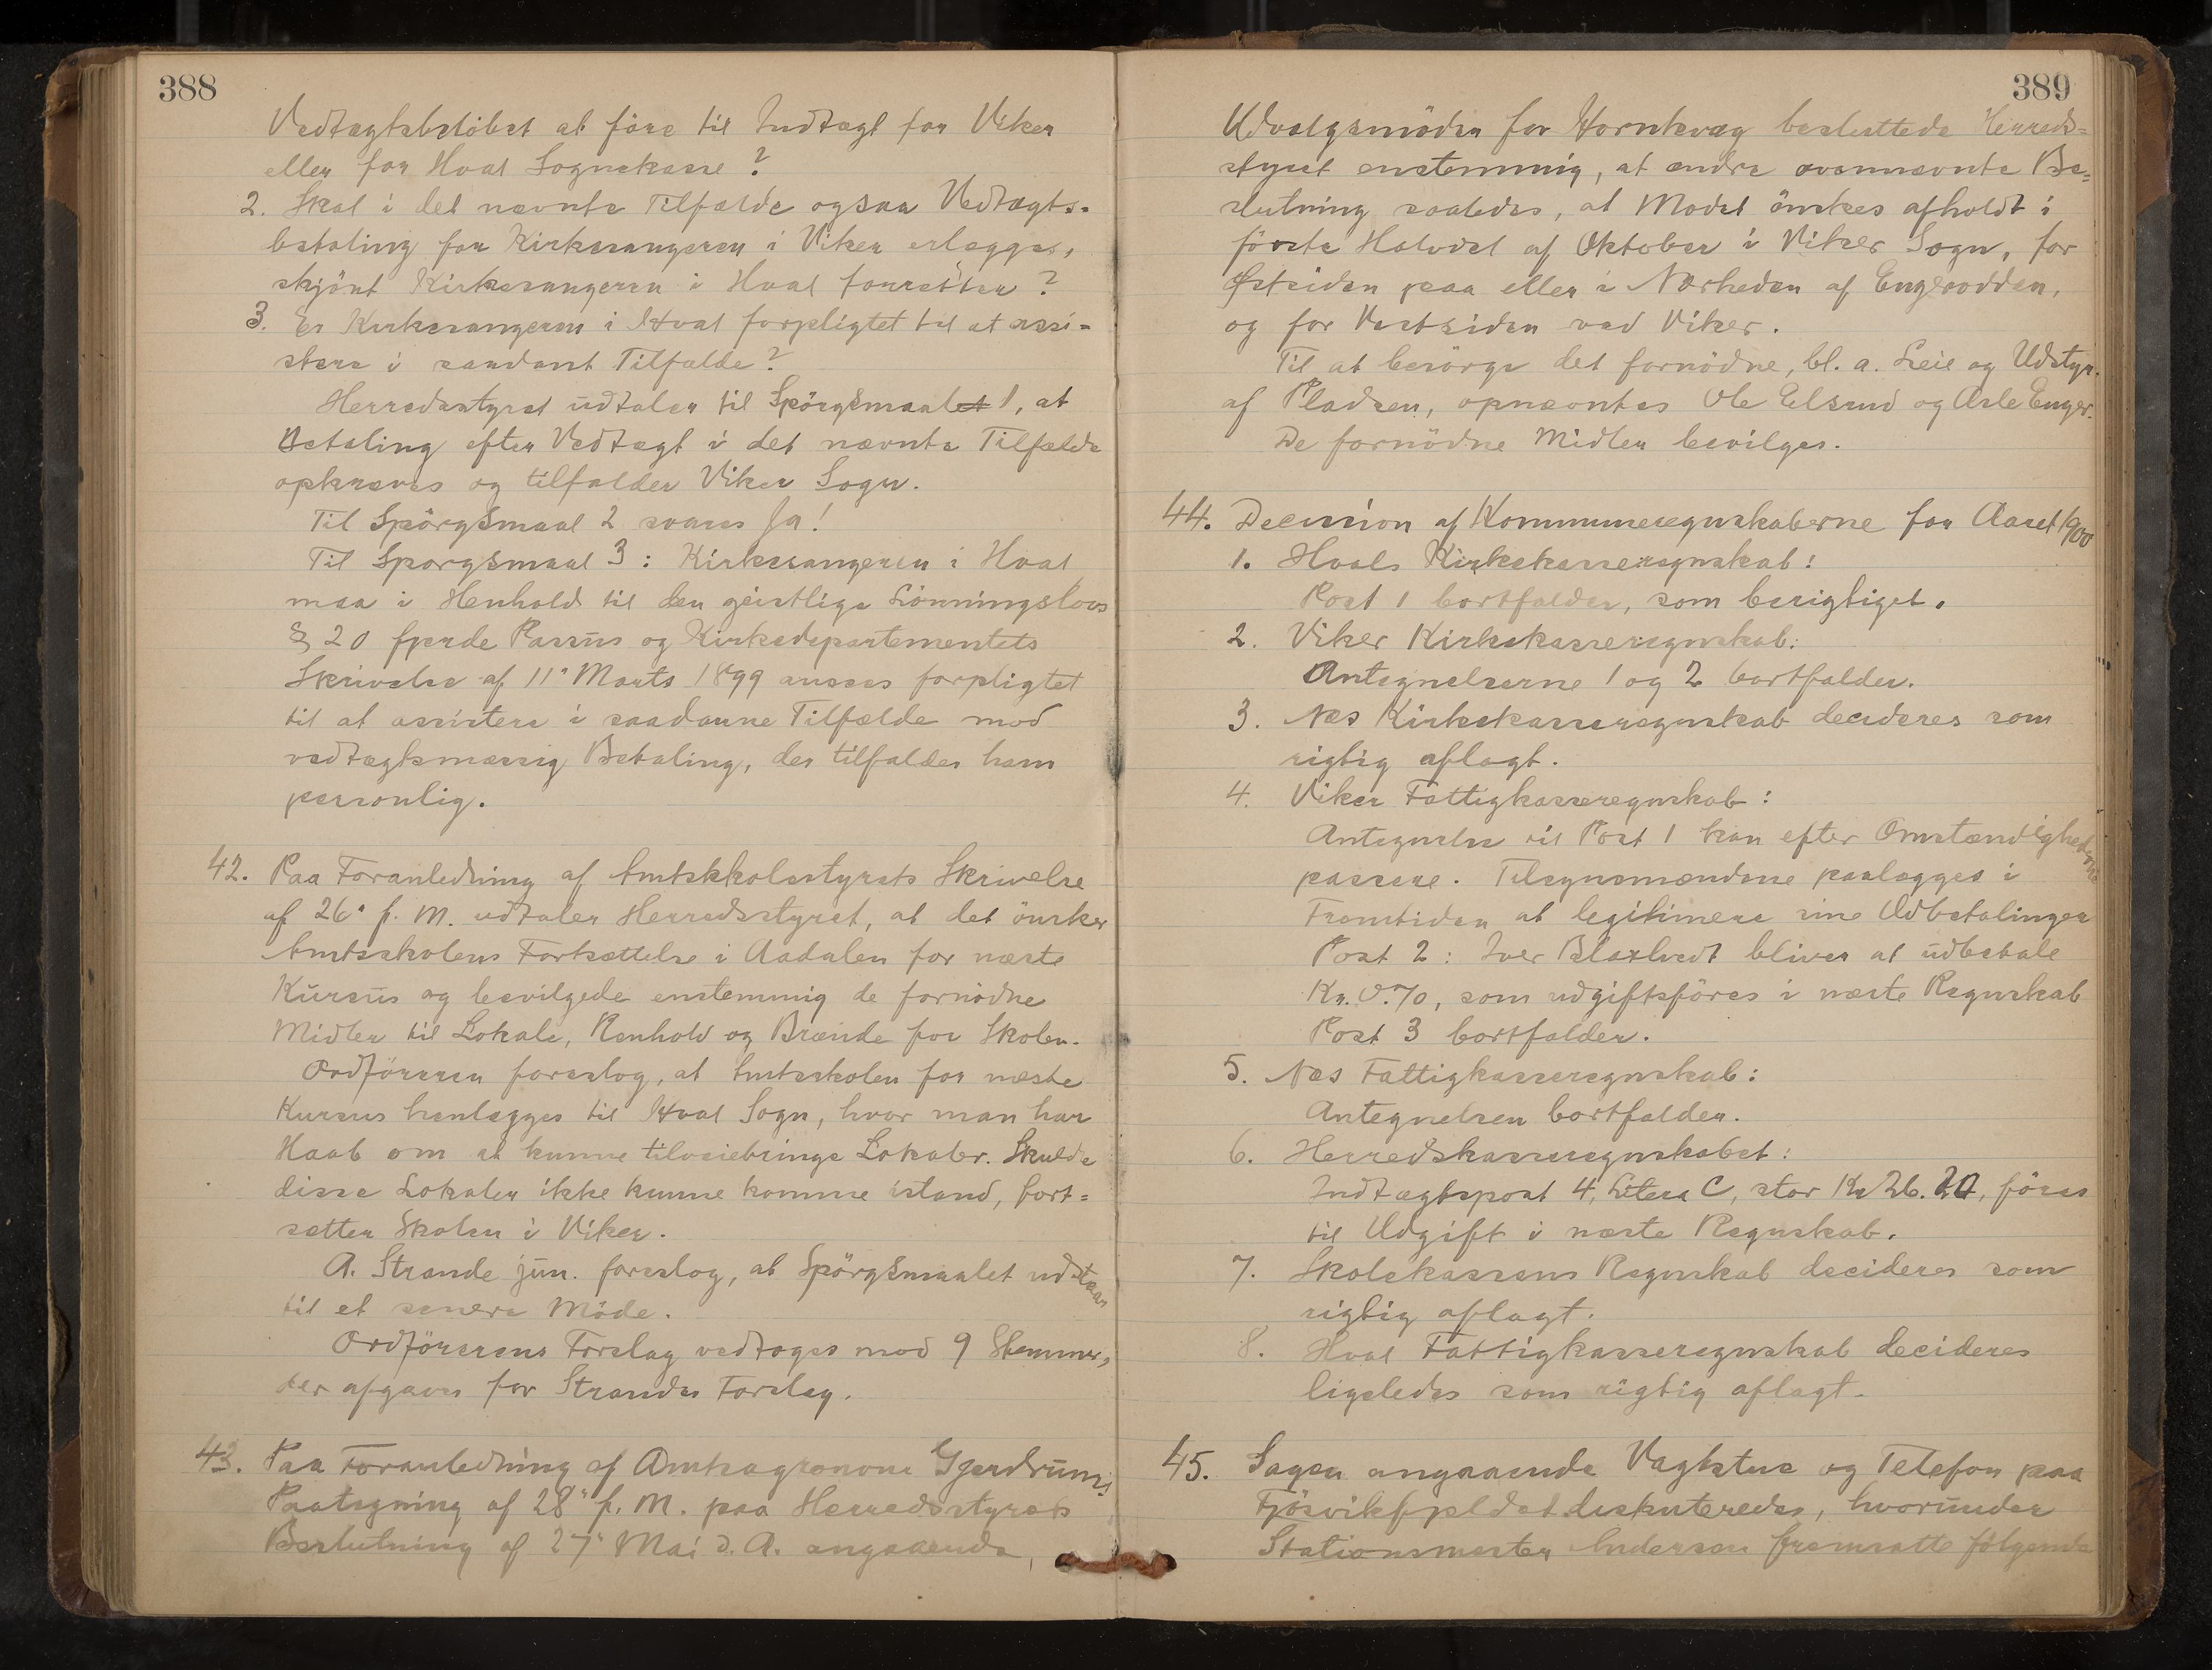 388
Vedtægtsbeløbet at føre til Indtægt for Viker
eller for Hval Sognekasse?
2. Skal i det nævnte Tilfælde ogsaa Vedtægts-
betaling for Kirkesangeren i Viker erlægges,
skjönt Kirkesangeren i Hval forretter?
3. Er Kirkesangeren i Hval forpligtet til at assi-
stere i saadant Tilfælde?
Herredsstyret udtaler til Spörgsmaalet 1, at
Betaling efter Vedtægt i det nævnte Tilfælde
opkræves og tilfalder Viker Sogn.
Til Spörgsmaal 2 svares Ja!
Til Sporgsmaal 3: Kirkesangeren i Hval
maa i Henhold til den geistlige Lönningslovs
§ 20 fjerde Passus og Kirkedepartementets
Skrivelse af 11te Marts 1899 ansees forpligtet
til at assistere i saadanne Tilfælde mod
vedtægtsmæssig Betaling, der tilfalder ham
personlig.
42. Paa Foranledning af Amtskolestyrets Skrivelse
af 26de f. M. udtaler Herredsstyret, at det önsker
Amtsskolens Fortsættelse i Aadalen for næste
Kursus og bevilgede enstemmig de fornödne
Midler til Lokale, Renhold og Brænde for Skolen.
Ordföreren foreslog, at Amtsskolen for næste
Kursus henlægges til Hval Sogn, hvor man har
Haab om at kunne tilveiebringe Lokaler. Skulde
disse Lokaler ikke kunne komme istand, fort=
sætter Skolen i Viker.
A. Strande jun. foreslog, at Spörgsmaalet udstaar
til et senere Möde.
Ordförerens Forslag vedtoges mod 9 Stemmer,
der afgaves for Strandes Forslag.
43. Paa Foranledning af Amtsagronom Gjerdrums
Paategning af 28de f. M. paa Herredsstyrets
Beslutning af 27de Mai d. A. angaaende
389
Udvalgsmöder for Hornkvæg besluttede Herreds=
styret enstemmig, at ændre ovennævnte Be=
slutning saaledes, at Mödet önskes afholdt i
förste Halvdel af Oktober i Viker Sogn, for
Östsiden paa eller i Nærheden af Engerodden,
og for Vestsiden ved Viker.
Til at besörge det fornödne, bl. a. Leie og Udstyr
af Pladsen, opnævntes Ole Elsrud og Asle Enger.
De fornödne Midler bevilges.
44. Decision af Kommuneregnskaberne for Aaret 1900
1. Hvals Kirkekasseregnskab:
Post 1 bortfalder, som berigtiget.
2. Viker Kirkekasseregnskab:
Antegnelserne 1 og 2 bortfalder.
3. Næs Kirkekasseregnskab decideres som
rigtig aflagt.
4. Viker Fattigkasseregnskab:
Antegnelse til Post 1 kan efter Omstændighederne
passere. Tilsynsmændene paalægges i
Fremtiden at legitimere sine Udbetalinger
Post 2: Iver bliver at udbetale
Kr. 0.70, som udgiftsföres i næste Regnskab
Post 3 bortfalder.
5. Næs Fattigkasseregnskab:
Antegnelsen bortfalder.
6. Herredskasseregnskabet:
Indtægtspost 4, Litera C, stor Kr 26. 20, föres
til Udgift i næste Regnskab.
7. Skolekassens Regnskab decideres som
rigtig aflagt.
8. Hval Fattigkasseregnskab decideres
ligeledes som rigtig aflagt.
45. Sagen angaaende Vagtstue og Telefon paa
Fjösvikfjeldet diskuteredes, hvorunder
Stationsmester Andersen fremsatte fölgende